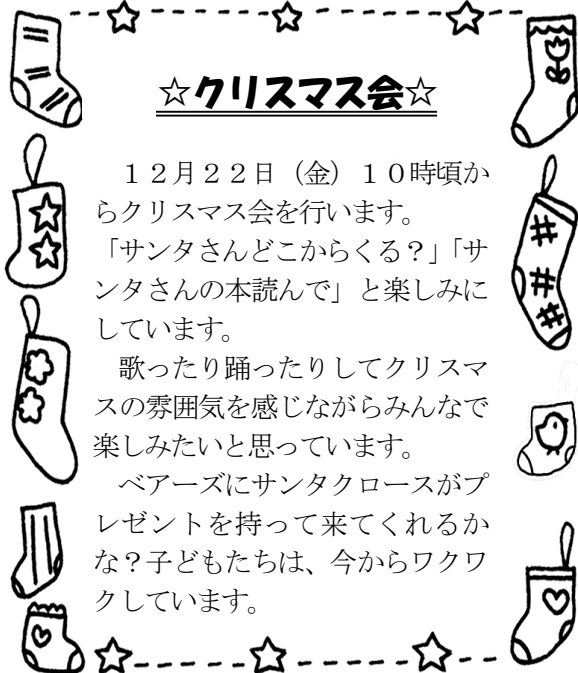 ☆クリスマス会☆
　１２月２２日（金）１０時頃か
らクリスマス会を行います。
「サンタさんどこからくる？」「サ
ンタさんの本読んで」と楽しみに
しています。
　歌ったり踊ったりしてクリスマ
スの雰囲気を感じながらみんなで
楽しみたいと思っています。
　ベアーズにサンタクロースがプ
レゼントを持って来てくれるか
な？子どもたちは、今からワクワ
クしています。